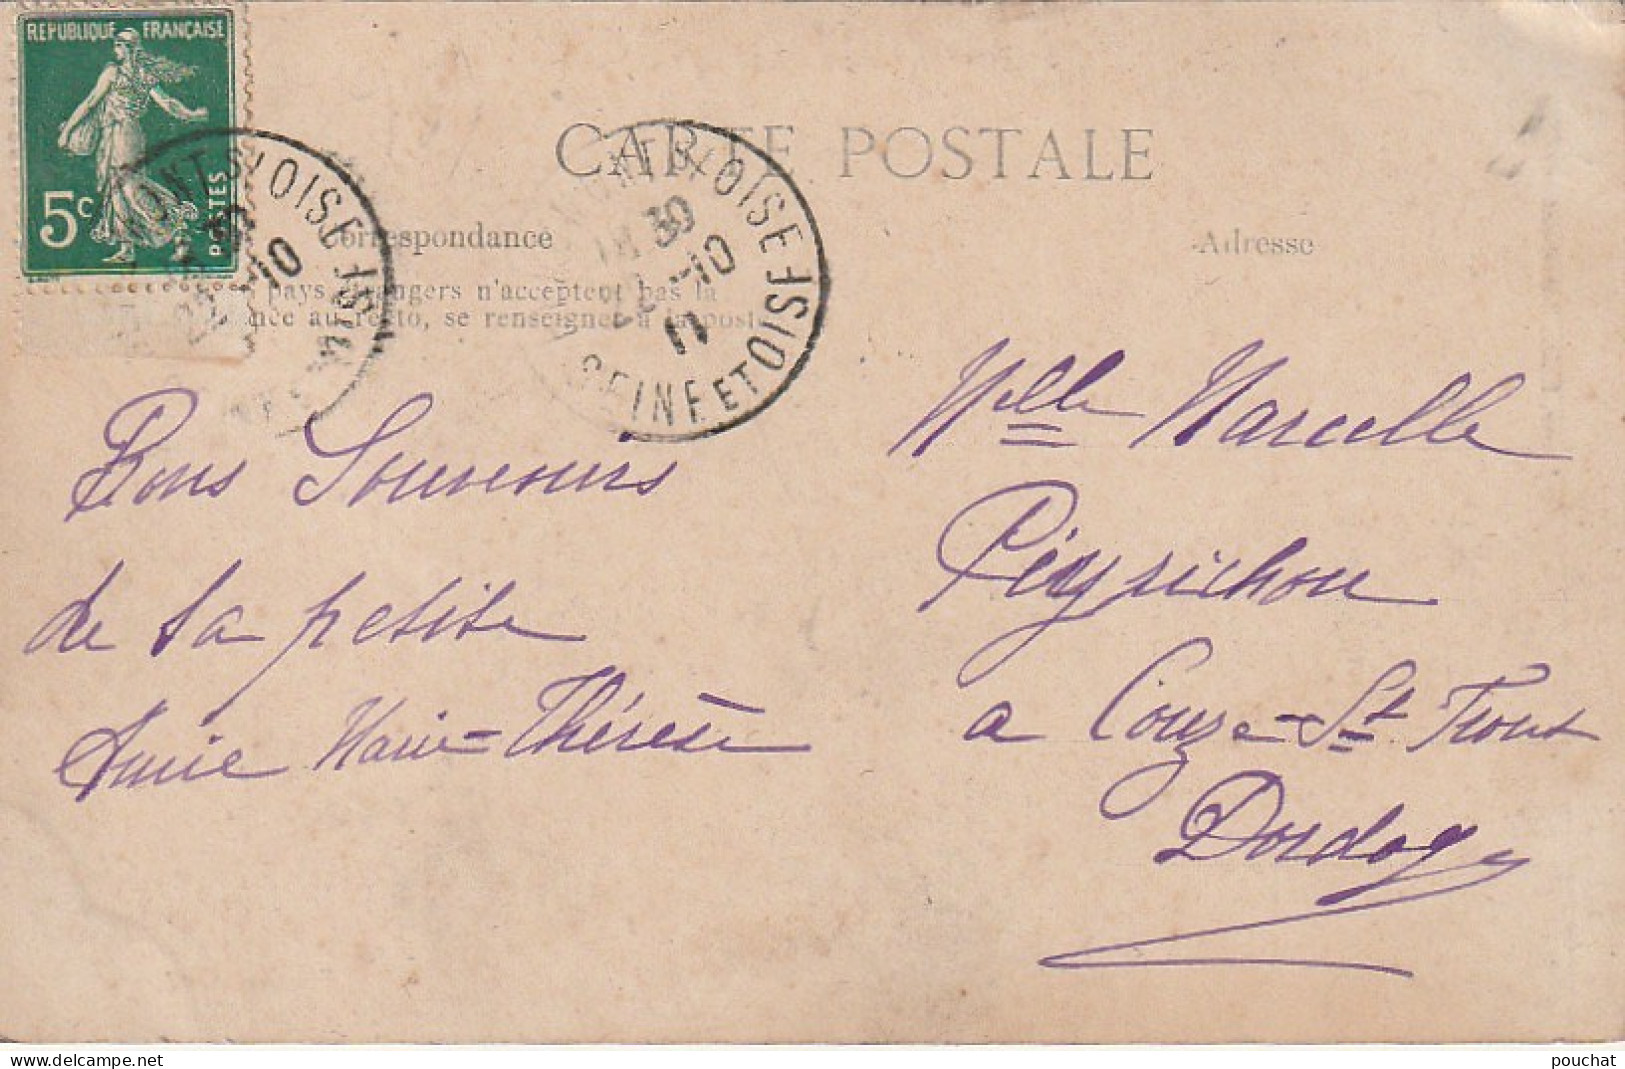 REPUBLIQUE FRANÇAISE
5c
POSTES
CARTE POSTALE
Correspondance
Adresse
pays étrangers n'acceptent pas la
au recto, se renseigner à la poste
MONT S/ OISE
30
-10
MONT S/ OISE
18 30
-10
11
SEINE ET OISE
Bons Souvenirs
de ta petite
Amie Marie-Thérèse
Melle Marcelle
Peyrichou
a Couze-St Front
Dordogne
delcampe.net
pouchat